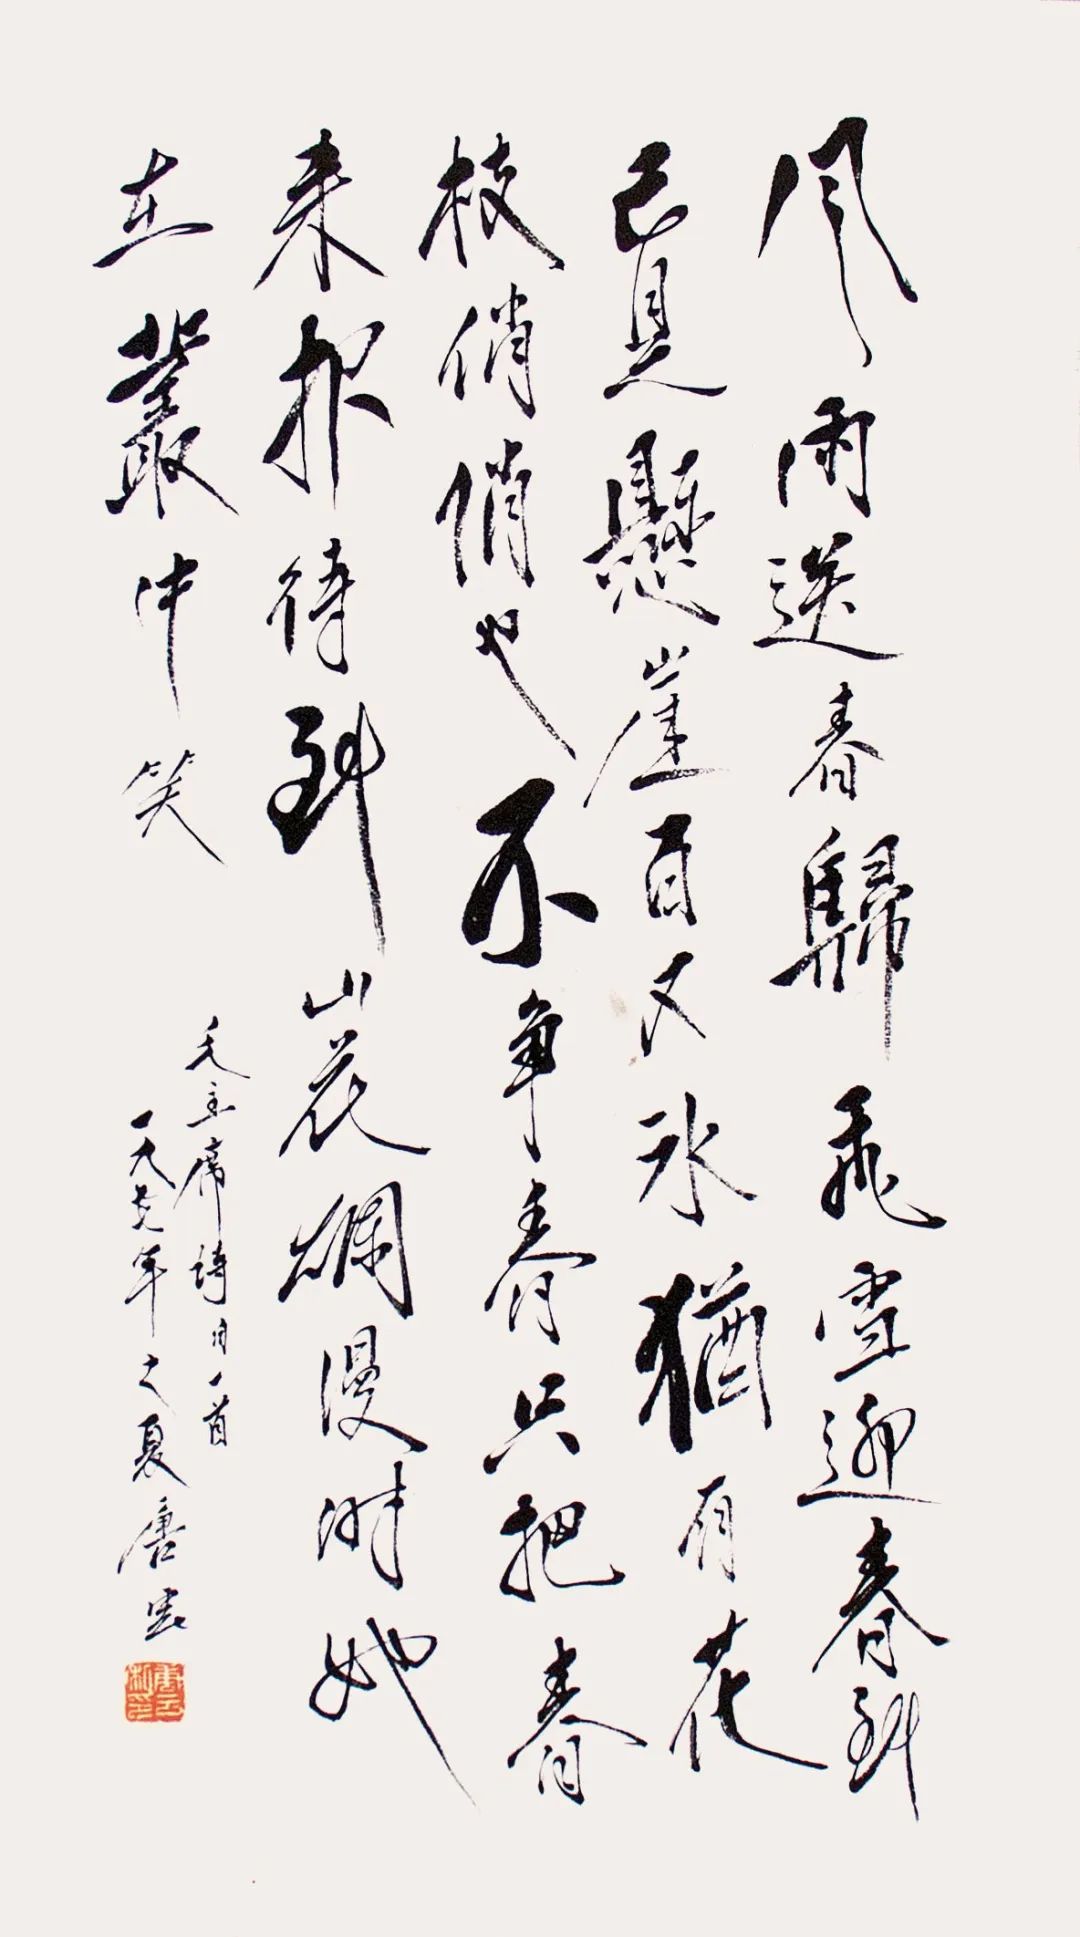 风雨送春歸飛雪迎春到
已見懸崖百丈冰猶有花
枝俏俏也不争春只把春
来报待到山花爛漫時她
在叢中笑
毛主席詩詞一首
一九七年之夏唐雲